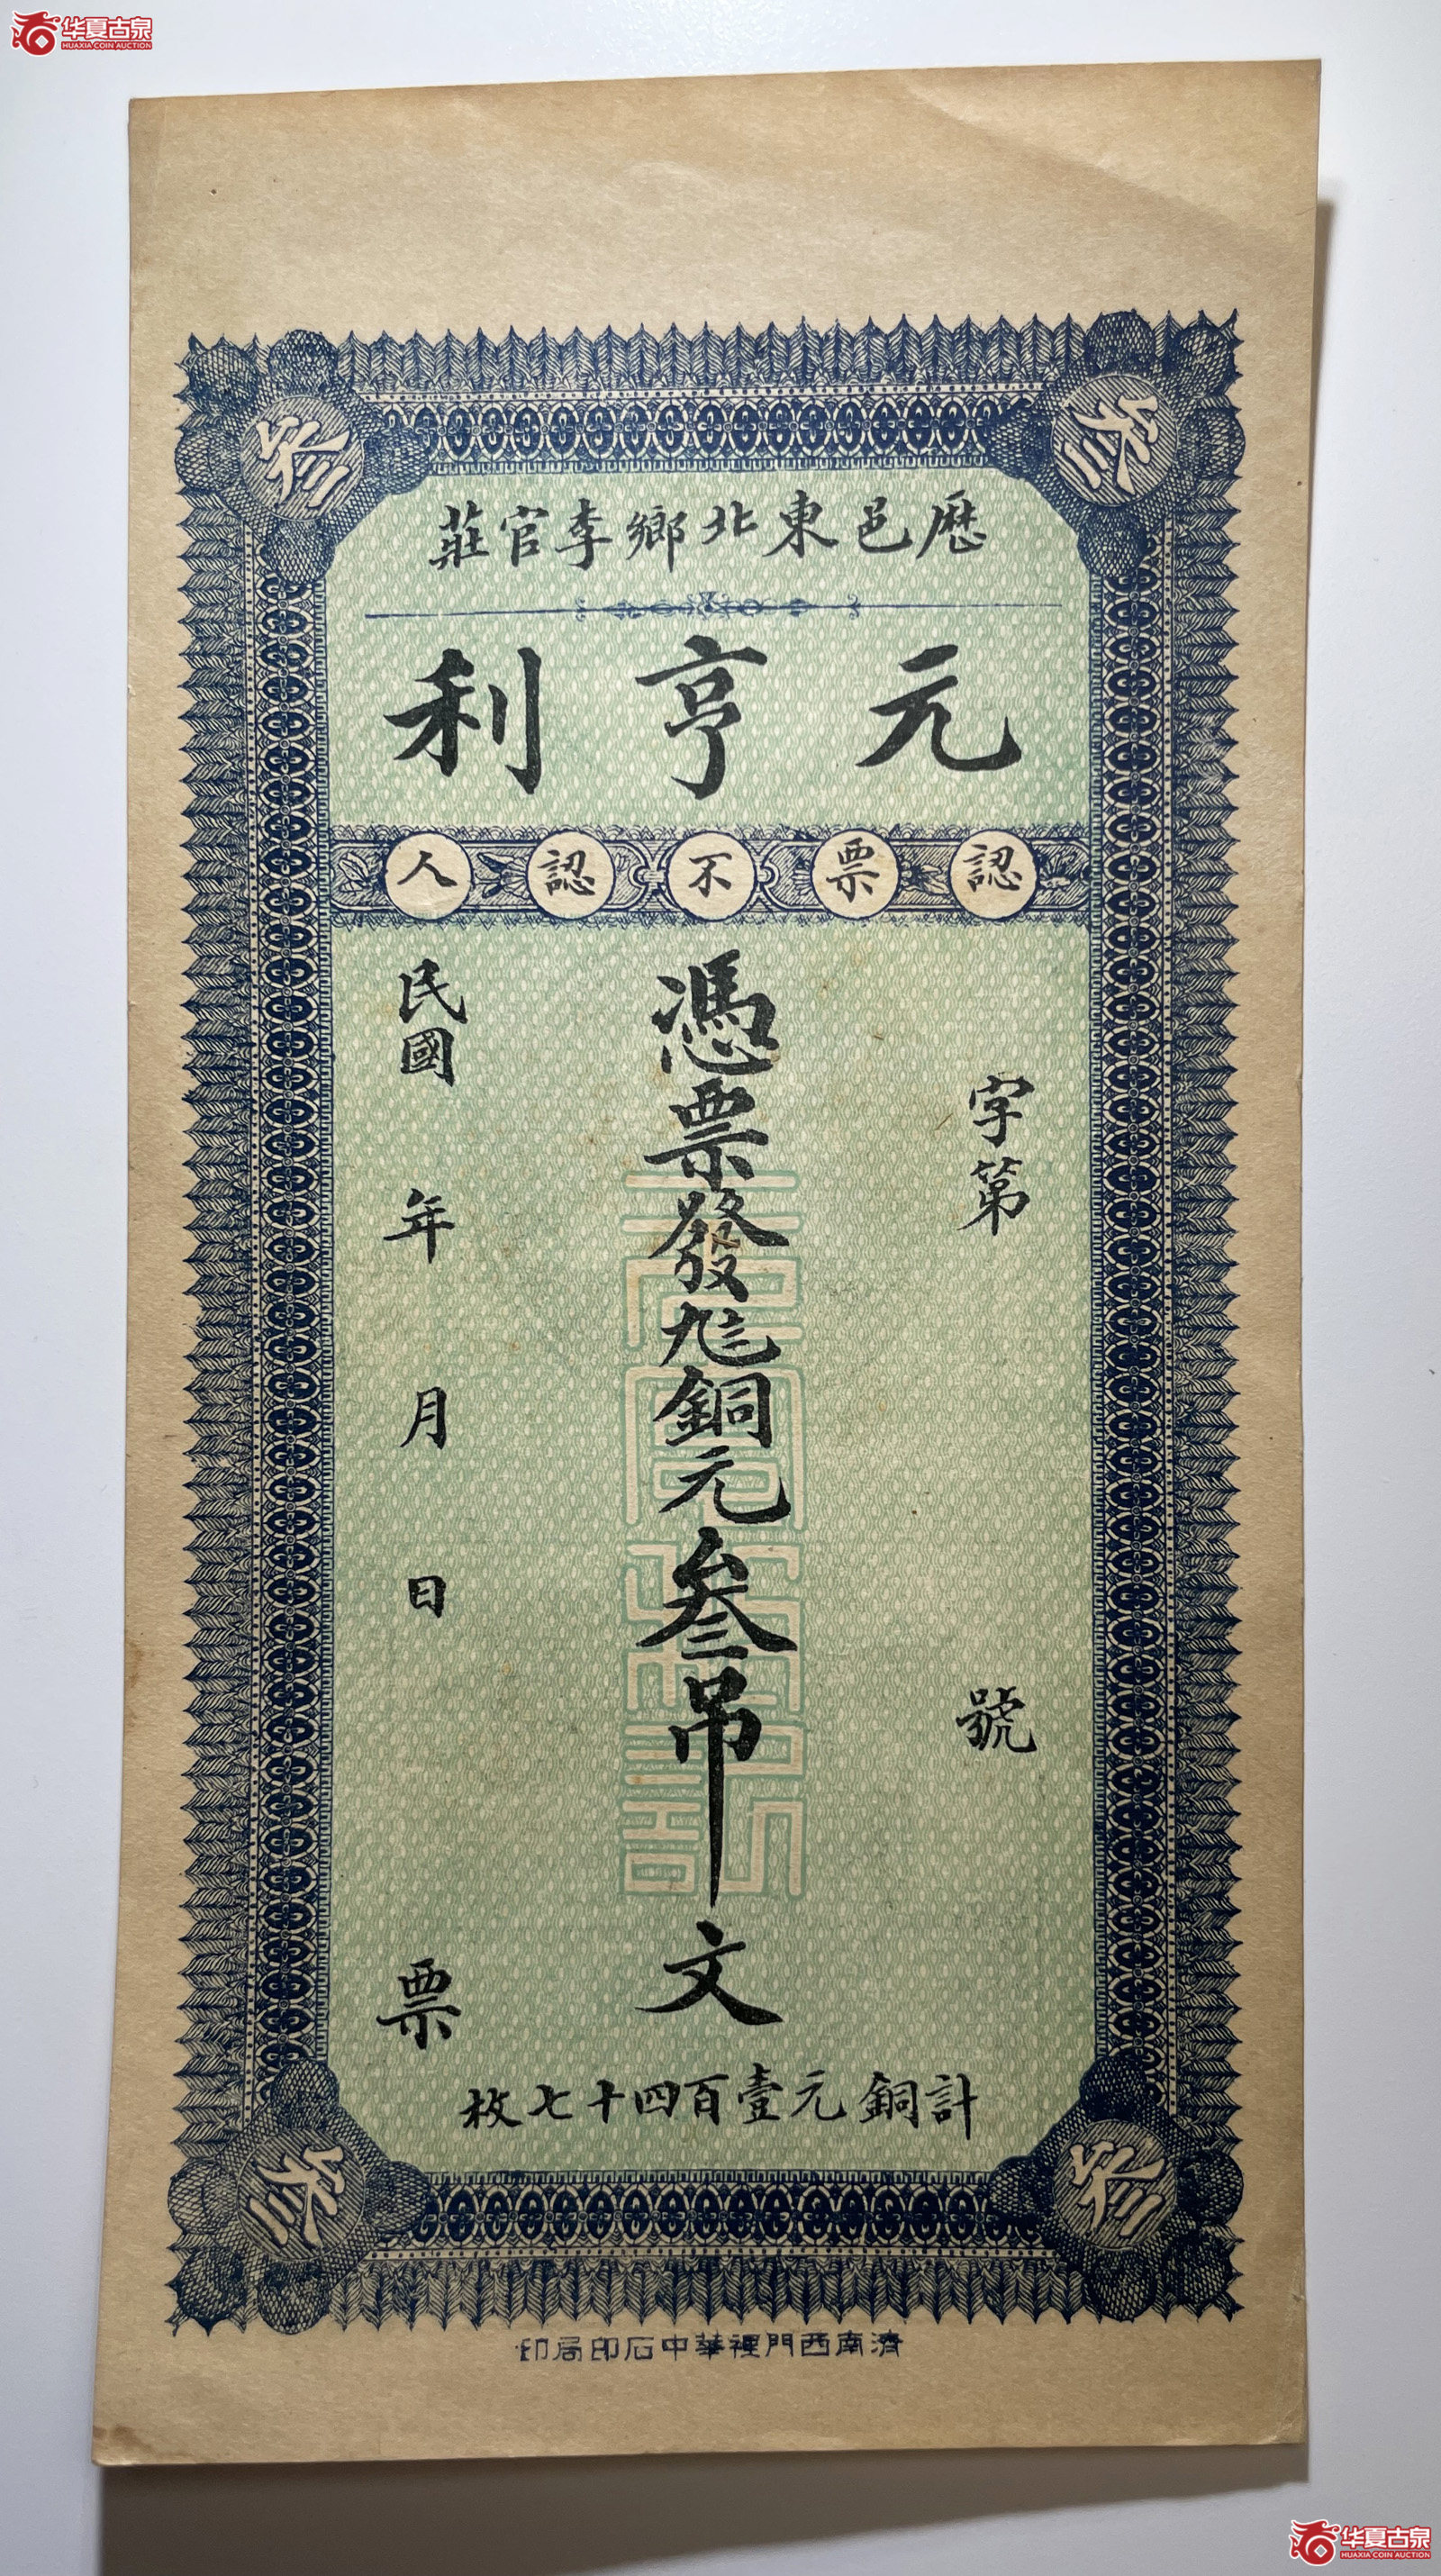 华夏古泉
HUAXIA COIN AUCTION
叁
叁
厯邑東北鄉李官莊
元亨利
認票不認人
字第 號
憑票發銅元叁吊文
民國 年 月 日 票
計銅元壹百四十七枚
叁
叁
濟南西門裡華中石印局印
华夏古泉
HUAXIA COIN AUCTION